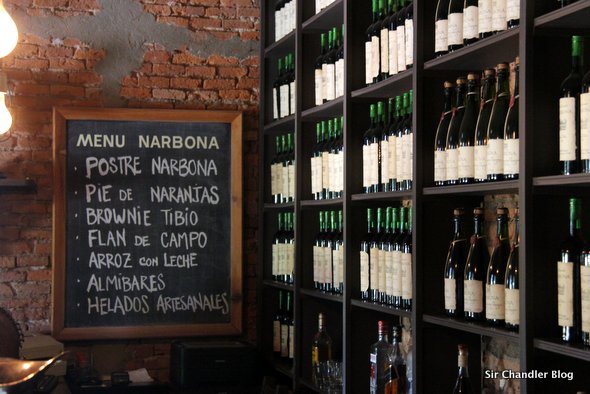 MENU NARBONA
· POSTRE NARBONA
· PIE DE NARANJAS
· BROWNIE TIBIO
· FLAN DE CAMPO
· ARROZ CON LECHE
· ALMIBARES
· HELADOS ARTESANALES
Sir Chandler Blog